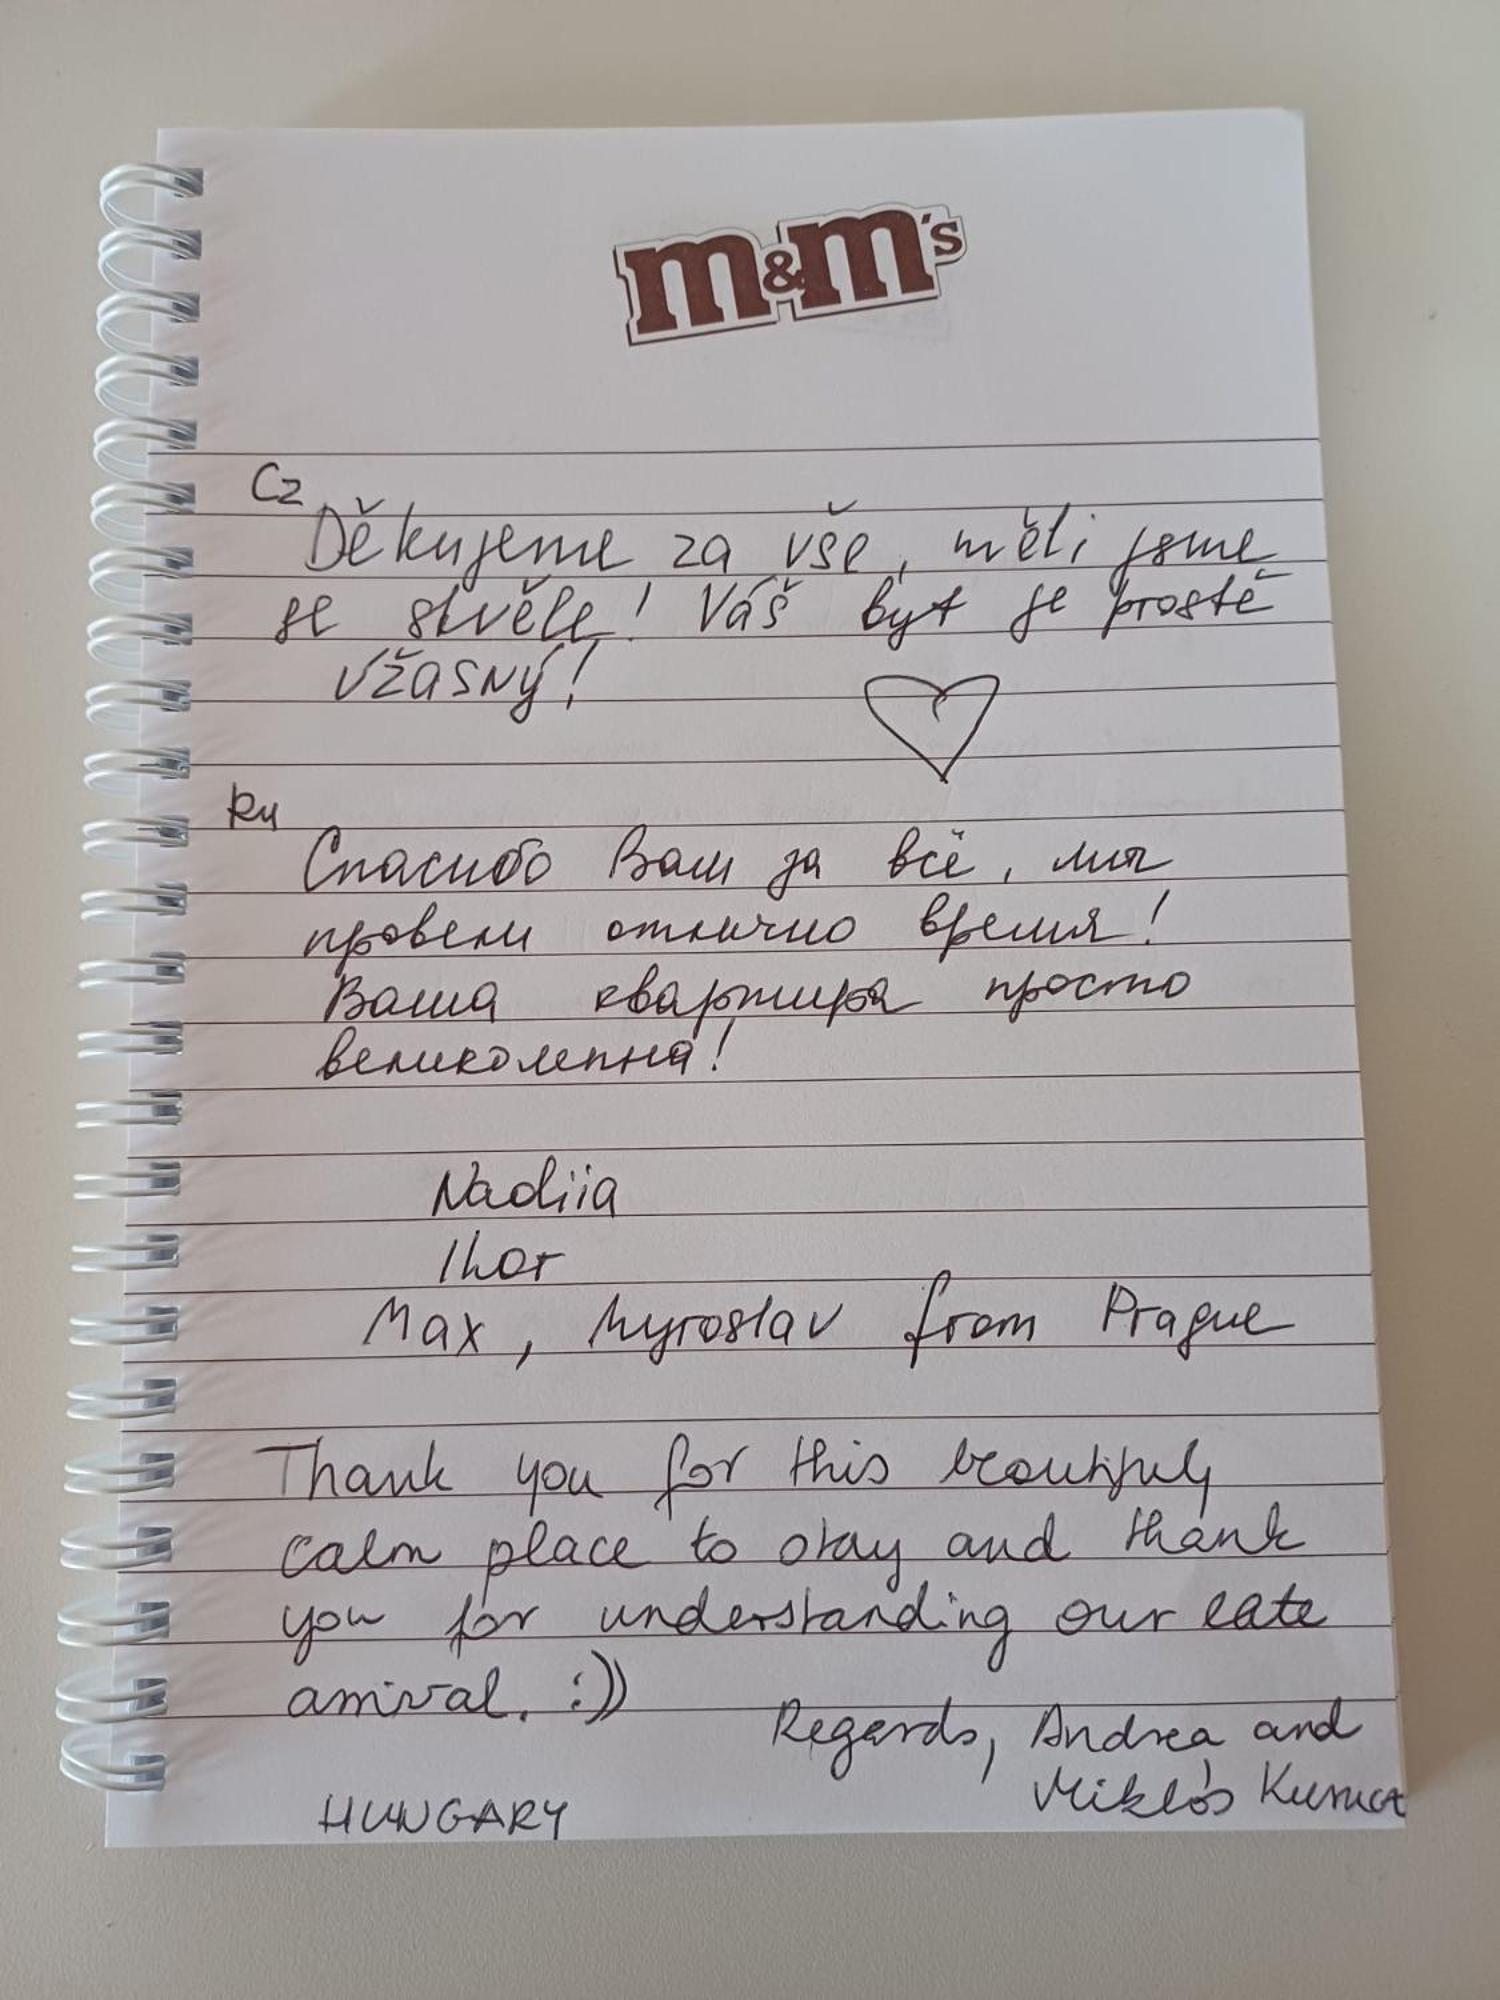 m&m's
Cz
Děkujeme za vše, měli jsme
se skvěle! Váš byt je prostě
vžasný!
Ru
Спасибо Вам за всё, мы
провели отлично время!
Ваша квартира просто
великолепна!
Nadiia
Ihor
Max, Myroslav from Prague
Thank you for this beautifuly
calm place to stay and thank
you for understanding our late
arrival. :))
Regards, Andrea and
Miklós
HUNGARY